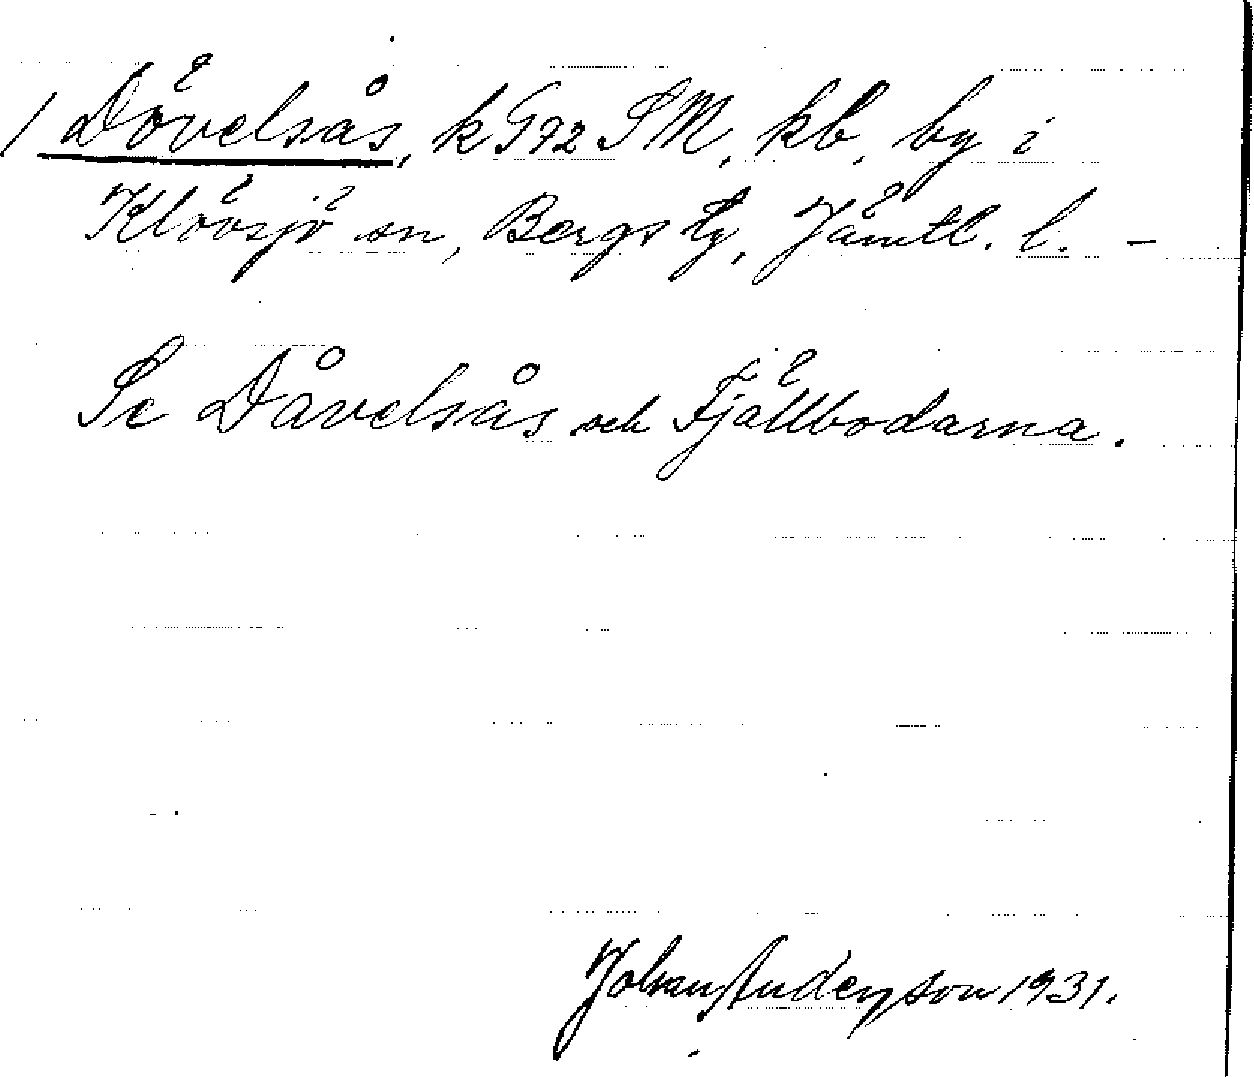 / Dövelsås, k G92 SM, kb, by i
Klövsjö sn, Bergs tg, Jämtl. l. -
Se Dåvelsås och Fjällbodarna.
Johan Anderson 1931.